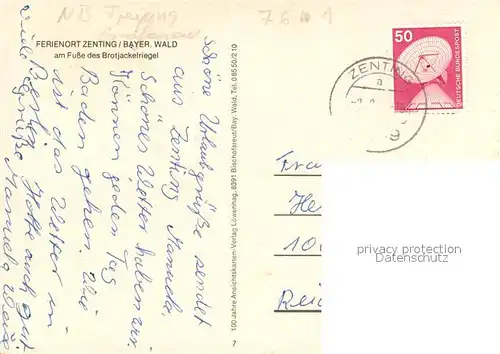 NB Freyung
75 10 1
FERIENORT ZENTING / BAYER. WALD
am Fuße des Brotjackelriegel
50
DEUTSCHE BUNDESPOST
ZENTING
a
Schöne Urlaubgrüße sendet
aus Zenting Manuela.
Schönes Wetter haben wir.
Können jeden Tag
Baden gehen. Wie
ist das Wetter in
Berlin. Hoffe auch gut
viele Grüße Manuela
100 Jahre Ansichtskarten-Verlag Löwenhag, 8391 Bischofsreut/Bay. Wald, Tel. 0 85 50/2 10
7
Fra
He
10
Rei
privacy protection